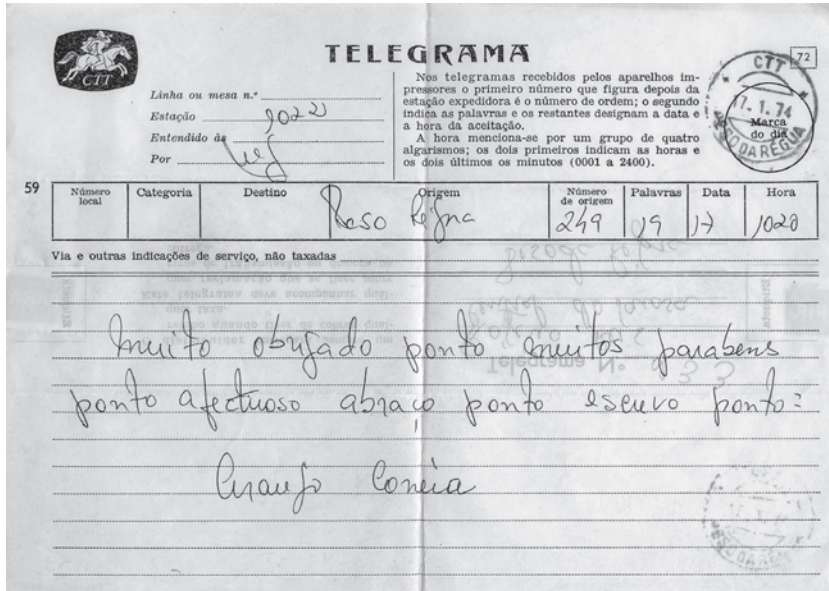 TELEGRAMA
CTT
72
Linha ou mesa n.º
Estação 1022
Entendido às
Por
Nos telegramas recebidos pelos aparelhos im-
pressores o primeiro número que figura depois da
estação expedidora é o número de ordem; o segundo
indica as palavras e os restantes designam a data e
a hora da aceitação.
A hora menciona-se por um grupo de quatro
algarismos; os dois primeiros indicam as horas e
os dois últimos os minutos (0001 a 2400).
CTT
17. 1. 74
Marca
do dia
PESO DA RÉGUA
59
Número local Categoria Destino Origem Número de origem Palavras Data Hora
Peso Régua 249 19 17 1020
Via e outras indicações de serviço, não taxadas
muito obrigado ponto muitos parabens
ponto afectuoso abraço ponto escrevo ponto =
Araujo Correia
Telegrama N.º